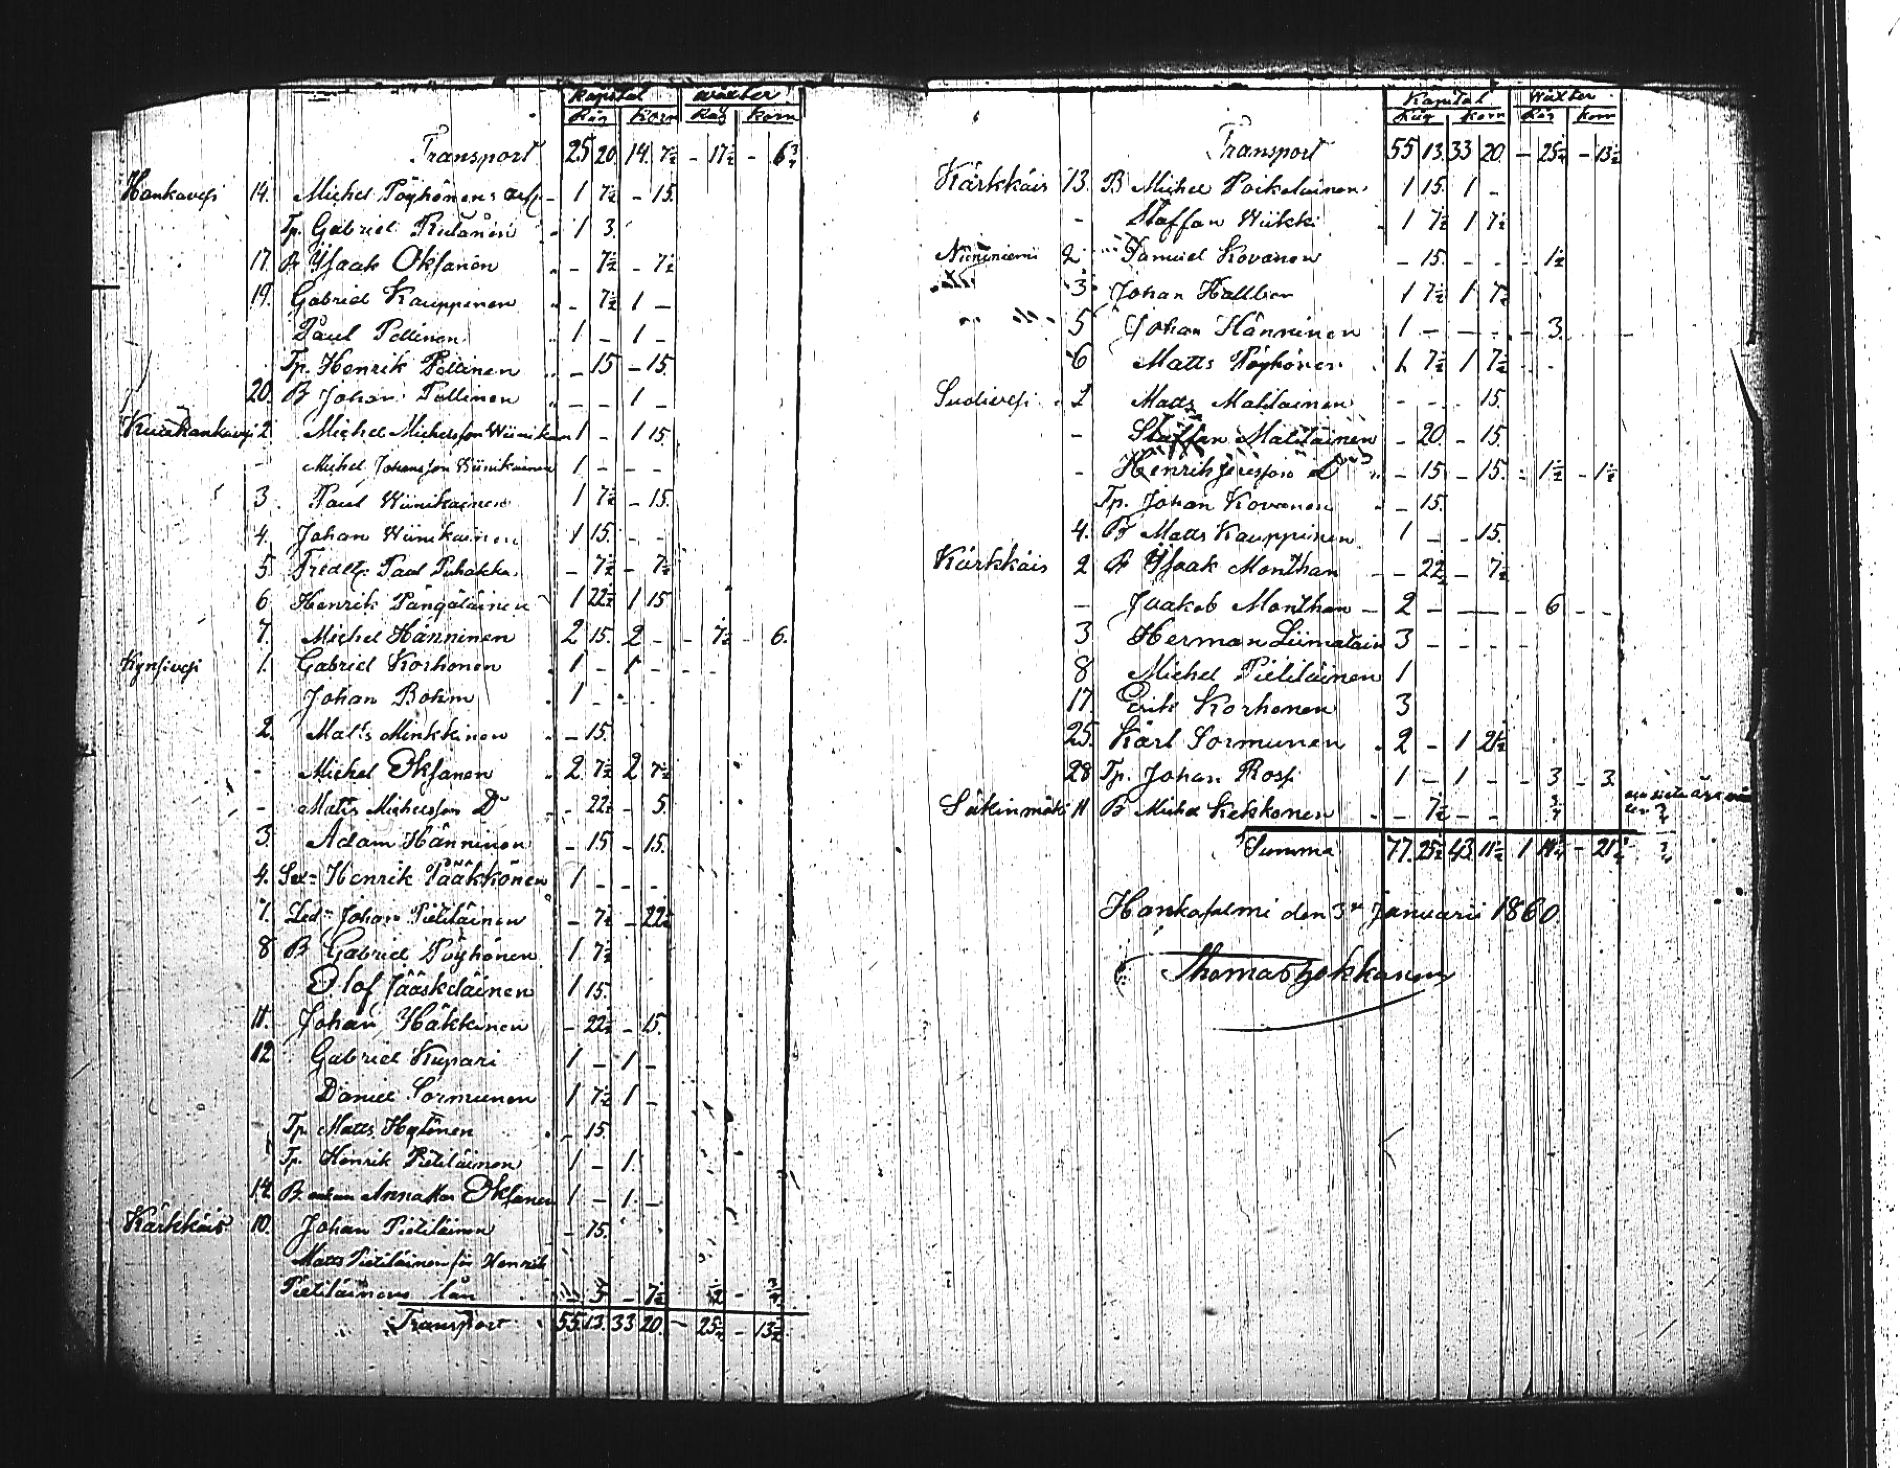 Kapital Wäxter
Råg Korn Råg Korn
Transport 25 20 14 7½ - 17½ - 6¾
Hankavesi 14. Michel Pöyhönens - 1 7½ - 15.
Tp. Gabriel 1 3.
17. Isaak Oksanen - 7½ - 7½
19. Gabriel Kauppinen - 7½ 1 -
Paul Pellinen 1 - 1 -
Tp. Henrik Pellinen - 15 - 15.
20. B Johan Pellinen - - 1 -
2 Michel Michelsson Wiinikain 1 - 1 15.
- Michel Johansson Wiinikainen 1 - - -
3 Paul Wiinikainen 1 7½ - 15.
4. Johan Wiinikainen 1 15. - -
5 Paul Puhakka - 7½ - 7½
6 Henrik Pängäläinen 1 22½ 1 15
7. Michel Hänninen 2 15. 2 - - 7½ - 6.
Kynsivesi 1. Gabriel Korhonen 1 - 1 - - -
Johan Bohm 1 - -
2. Matts Minkkinen - 15.
- Michel Oksanen 2 7½ 2 7½
- Matts Michelsson Do - 22½ - 5.
3. Adam Hänninen - 15 - 15.
4. Henrik Pääkkönen 1 - - -
7. Johan Pietiläinen - 7½ - 22½
8 B Gabriel Pöyhönen 1 7½
Olof Jääskeläinen 1 15.
11. Johan Häkkinen - 22½ - 15.
12 Gabriel Kupari 1 - 1 -
Daniel Sormunen 1 7½ 1 -
Tp. Matts Hytönen - 15.
Tp. Henrik Pietiläinen 1 - 1.
14. B Anna Oksanen 1 - 1. -
Kärkkäis 10. Johan Pietiläinen - 15.
Matts Pietiläinen för Henrik
Pietiläinens lån - 5 - 7½ ½ - ¾
Transport 55 13. 33 20. - 25¼ - 13½
Kapital Wäxter
Råg Korn Råg Korn
Transport 55 13. 33 20. - 25¼ - 13½
Kärkkäis 13. B Michel Poikolainen 1 15. 1 -
- Staffan Wiikki 1 7½ 1 7½
Niininiemi 2 Samuel Kovanen - 15. - - - 1½
3 Johan Hallberg 1 7½ 1 7½
5 Johan Hänninen 1 - - - - 3.
6 Matts Pöyhönen 1 7½ 1 7½
Suolivesi 2 Matts Matilainen - - - 15.
- Staffan Matilainen - 20. - 15.
- Henrik Do - 15 - 15. - 1½ - 1½
Tp. Johan Kovanen - 15.
4. B Matts Kauppinen 1 - - 15.
Kärkkäis 2 Isaak Monthan - 22½ - 7½
- Jaakob Monthan - 2 - - - 6 - -
3 Herman Liimatain 3 - - -
8 Michel Pietiläinen 1
17. Erik Korhonen 3
25. Karl Sormunen 2 - 1 21½
28 Tp. Johan Ross 1 - 1 - - 3 - 3.
Säkinmäki 11 B Michel Kekkonen - 7½ - - ¾
Summa 77. 25½ 43. 11½ 1 19¼ - 21¼
Hankasalmi den 3 Januarii 1860.
Thomas Hokkanen